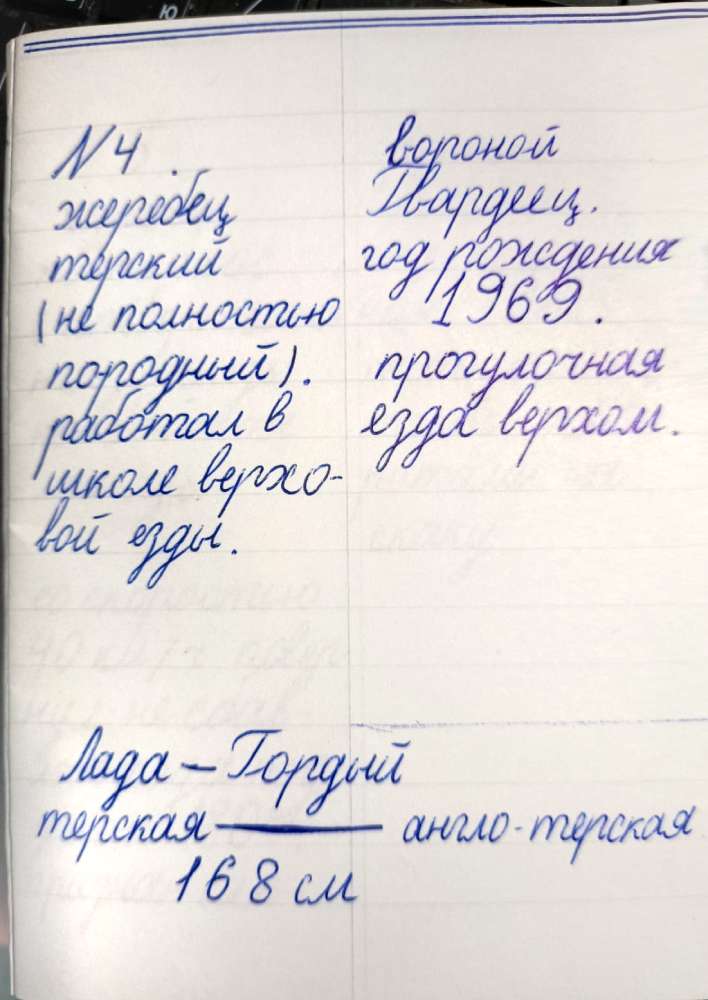 N 4.
жеребец
терский
(не полностью
породный).
работал в
школе верхо-
вой езды.
вороной
Гвардеец.
год рождения
1969.
прогулочная
езда верхом.
Лада – Гордый
терская — англо-терская
168 см